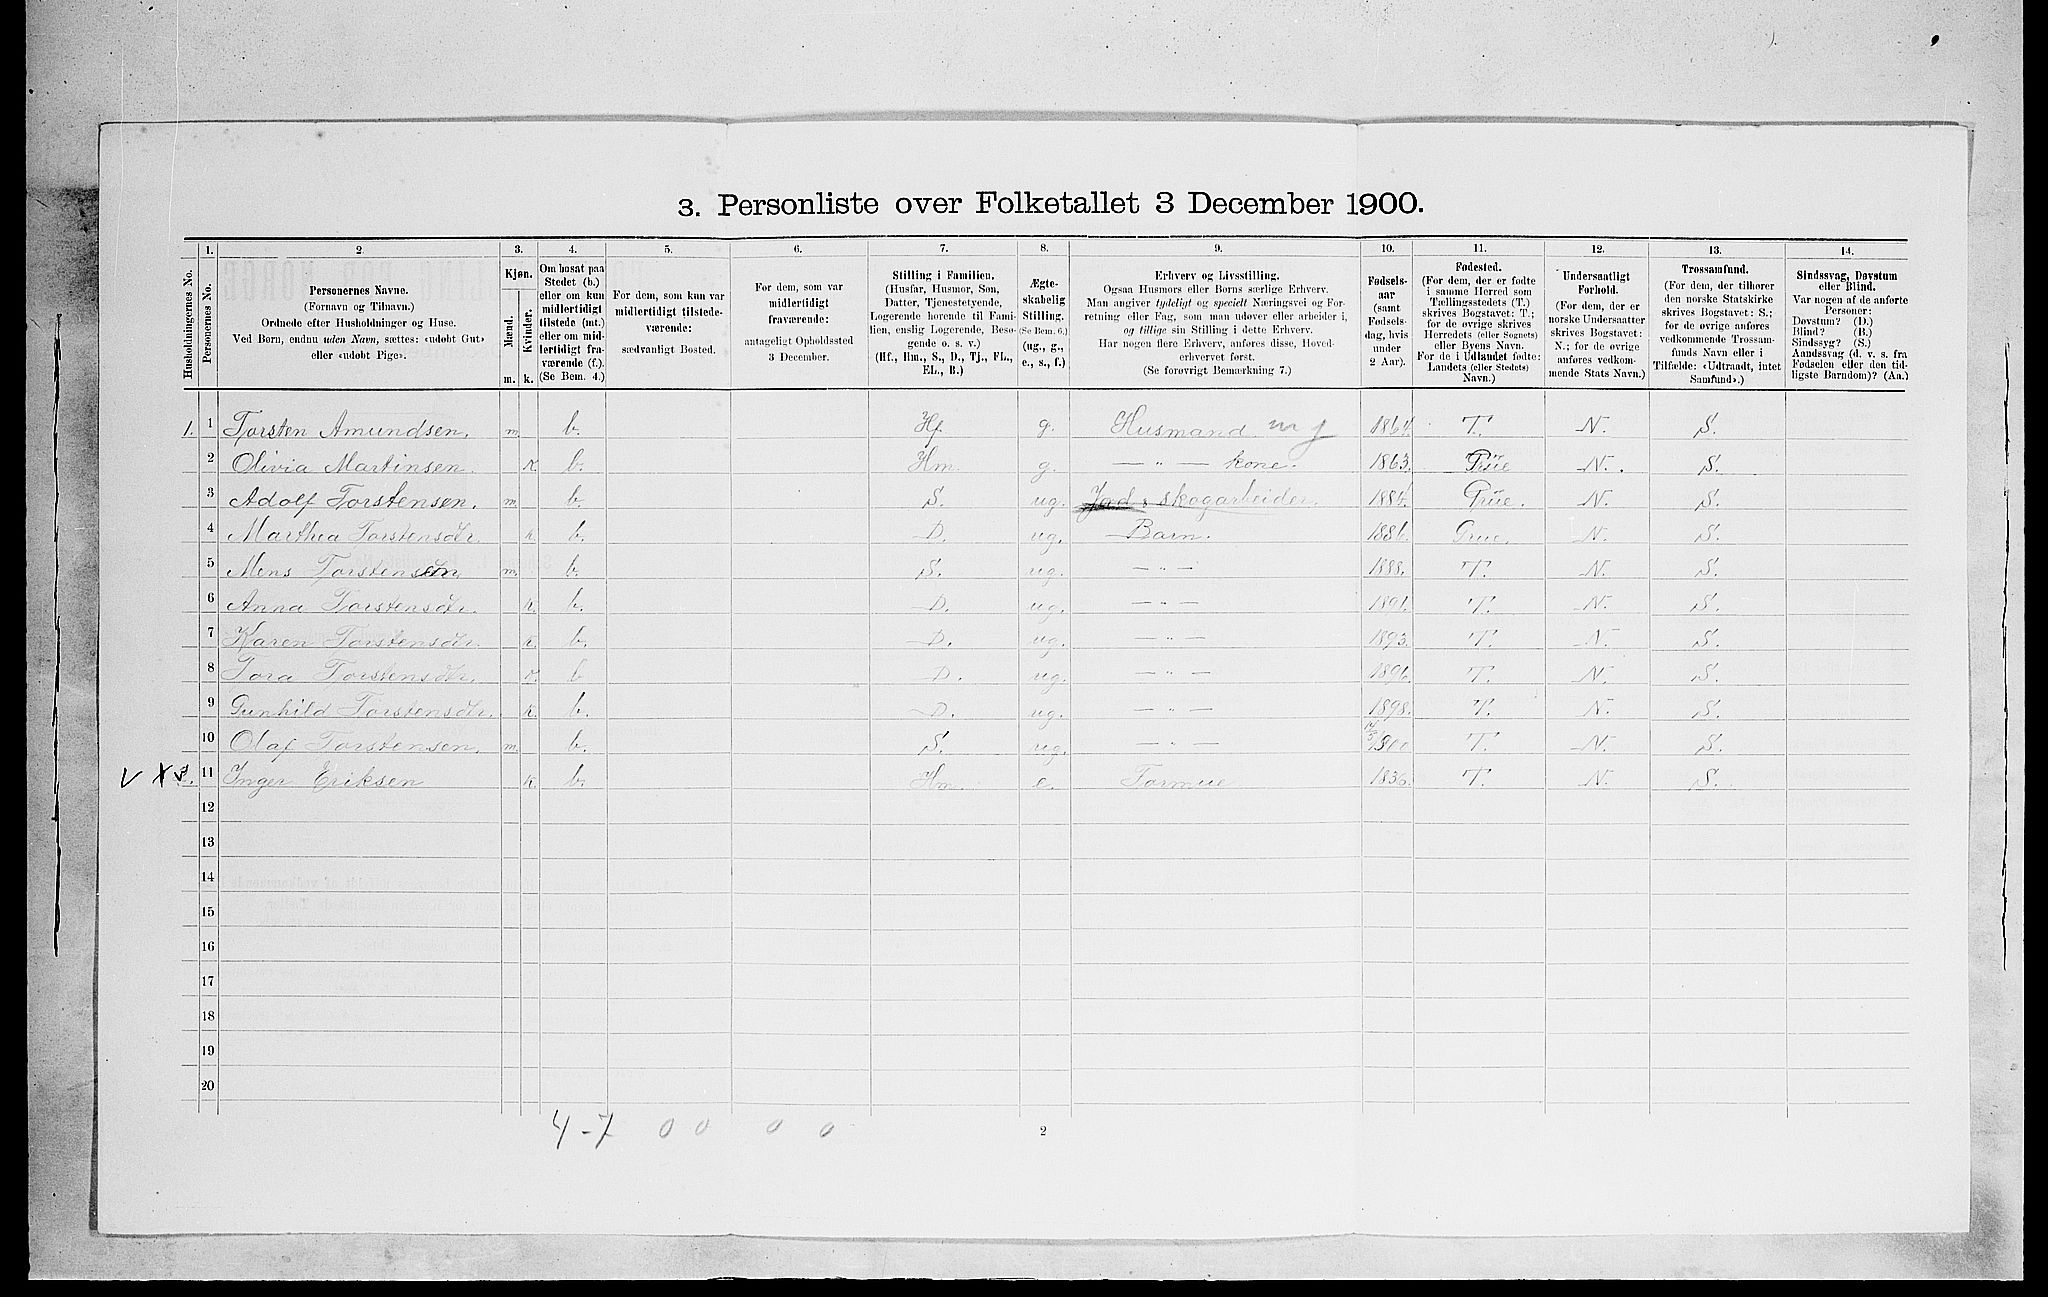 3. Personliste over Folketallet 3 December 1900.
Husholdningernes No.
1.
Personernes No.
2.
Personernes Navne.
(Fornavn og Tilnavn.)
Ordnede efter Husholdninger og Huse.
Ved Børn, endnu uden Navn, sættes: «udøbt Gut»
eller «udøbt Pige».
3.
Kjøn.
Mænd.
Kvinder.
m. k.
4.
Om bosat paa
Stedet (b.)
eller om kun
midlertidigt
tilstede (mt.)
eller om mid-
lertidigt fra-
værende (f.).
(Se Bem. 4.)
5.
For dem, som kun var
midlertidigt tilstede-
værende:
sædvanligt Bosted.
6.
For dem, som var
midlertidigt
fraværende:
antageligt Opholdssted
3 December.
7.
Stilling i Familien.
(Husfar, Husmor, Søn,
Datter, Tjenestetyende,
Logerende hørende til Fami-
lien, enslig Logerende, Besø-
gende o. s. v.)
(Hf., Hm., S., D., Tj., FL.,
EL., B.)
8.
Ægte-
skabelig
Stilling.
(Se Bem. 6.)
(ug., g.,
e., s., f.)
9.
Erhverv og Livsstilling.
Ogsaa Husmors eller Børns særlige Erhverv.
Man angiver tydeligt og specielt Næringsvei og For-
retning eller Fag, som man udøver eller arbeider i,
og tillige sin Stilling i dette Erhverv.
Har nogen flere Erhverv, anføres disse, Hoved-
erhvervet først.
(Se forøvrigt Bemærkning 7.)
10.
Fødsels-
aar
(samt
Fødsels-
dag, hvis
under
2 Aar).
11.
Fødested.
(For dem, der er fødte
i samme Herred som
Tællingsstedets (T.)
skrives Bogstavet: T.;
for de øvrige skrives
Herredets (eller Sognets)
eller Byens Navn.
For de i Udlandet fødte:
Landets (eller Stedets)
Navn.)
12.
Undersaatligt
Forhold.
(For dem, der er
norske Undersaatter
skrives Bogstavet:
N.; for de øvrige
anføres vedkom-
mende Stats Navn.)
13.
Trossamfund.
(For dem, der tilhører
den norske Statskirke
skrives Bogstavet: S.;
for de øvrige anføres
vedkommende Trossam-
funds Navn eller i
Tilfælde: «Udtraadt, intet
Samfund».)
14.
Sindssvag, Døvstum
eller Blind.
Var nogen af de anførte
Personer:
Døvstum? (D.)
Blind? (B.)
Sindssyg? (S.)
Aandssvag (d. v. s. fra
Fødselen eller den tid-
ligste Barndom)? (Aa.)
1. 1 Torsten Amundsen. m. b. Hf. g. Husmand m j 1864. T. N. S.
2 Olivia Martinsen. k. b. Hm. g. — „ — kone. 1863. Grue N. S.
3 Adolf Torstensen. m. b. S. ug. Jord & skogarbeider. 1884. Grue. N. S.
4 Marthea Torstensdtr. k. b. D. ug. Barn. 1886. Grue. N. S.
5 Mens Torstensen m. b. S. ug. — „ — 1888. T. N. S.
6 Anna Torstensdtr. k. b. D. ug. — „ — 1891. T. N. S.
7 Karen Torstensdtr. k. b. D. ug. — „ — 1893. T. N. S.
8 Tora Torstensdtr. k. b D. ug. — „ — 1896. T. N. S.
9 Gunhild Torstensdtr. k. b. D. ug. — „ — 1898. T. N. S.
10 Olaf Torstensen. m. b. S. ug. — „ — 1900 T. N. S.
V X 2. 11 Inger Eriksen k. b. Hm. e. Formue 1836. T. N. S.
12
13
14
15
16
17
18
19
20
4-7 0 0 0 0
2